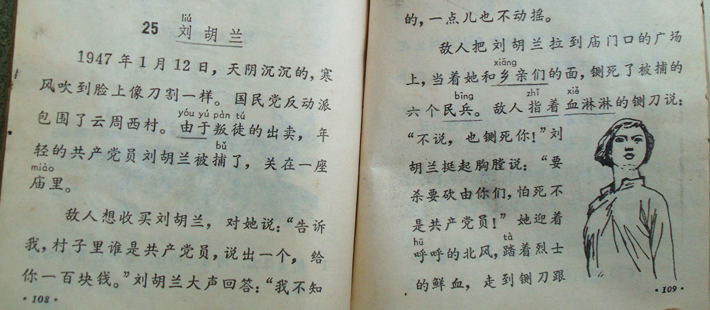 liú
25 刘胡兰
1947年1月12日，天阴沉沉的，寒
风吹到脸上像刀割一样。国民党反动派
yóu yú pàn tú
包围了云周西村。由于叛徒的出卖，年
bǔ
轻的共产党员刘胡兰被捕了，关在一座
miào
庙里。
敌人想收买刘胡兰，对她说：“告诉
我，村子里谁是共产党员，说出一个，给
你一百块钱。”刘胡兰大声回答：“我不知
·108·
的，一点儿也不动摇。
敌人把刘胡兰拉到庙门口的广场
xiāng
上，当着她和乡亲们的面，铡死了被捕的
bīng zhǐ xiě
六个民兵。敌人指着血淋淋的铡刀说：
“不说，也铡死你！”刘
胡兰挺起胸膛说：“要
杀要砍由你们，怕死不
是共产党员！”她迎着
hū tà
呼呼的北风，踏着烈士
的鲜血，走到铡刀跟
·109·